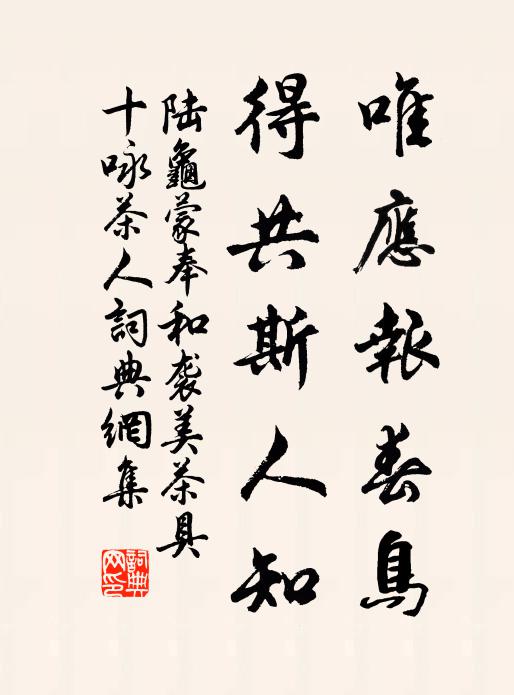 唯應報春鳥
得共斯人知
陆龜蒙奉和袭美茶具
十咏茶人詞典網集
詞典网印